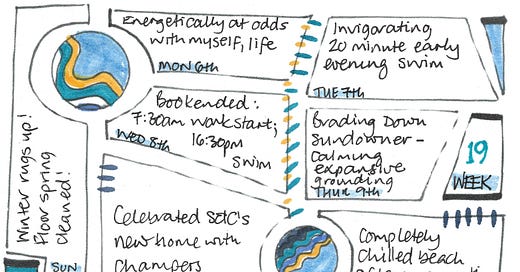 Energetically at odds
with myself, life
MON 6th
Invigorating
20 minute early
evening swim
TUE 7th
Bookended:
7:30am work start;
16:30pm
swim
WED 8th
Brading Down
sundowner -
calming
expansive
grounding
THUR 9th
19
WEEK
Winter rugs up!
Floor spring
cleaned!
SUN
Celebrated
new home with
champers
Completely
chilled beach